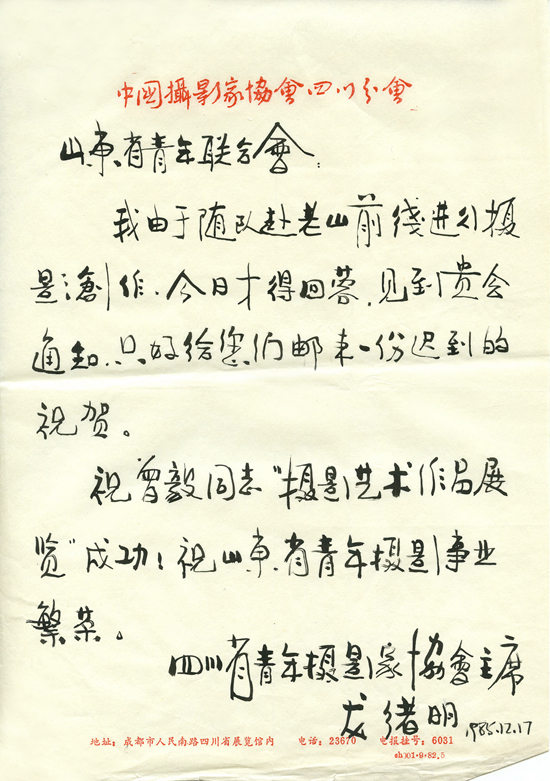 中國攝影家協會四川分會
山东省青年联合會:
我由于随队赴老山前线进行摄
影創作、今日才得回蓉,见到贵会
通知,只好给您们邮来一份迟到的
祝贺。
祝曾毅同志"摄影艺术作品展
览"成功!祝山东省青年摄影事业
繁荣。
四川省青年摄影家协會主席
龙绪明 1985.12.17
地址:成都市人民南路四川省展览馆内 电话:23670 电报挂号:6031